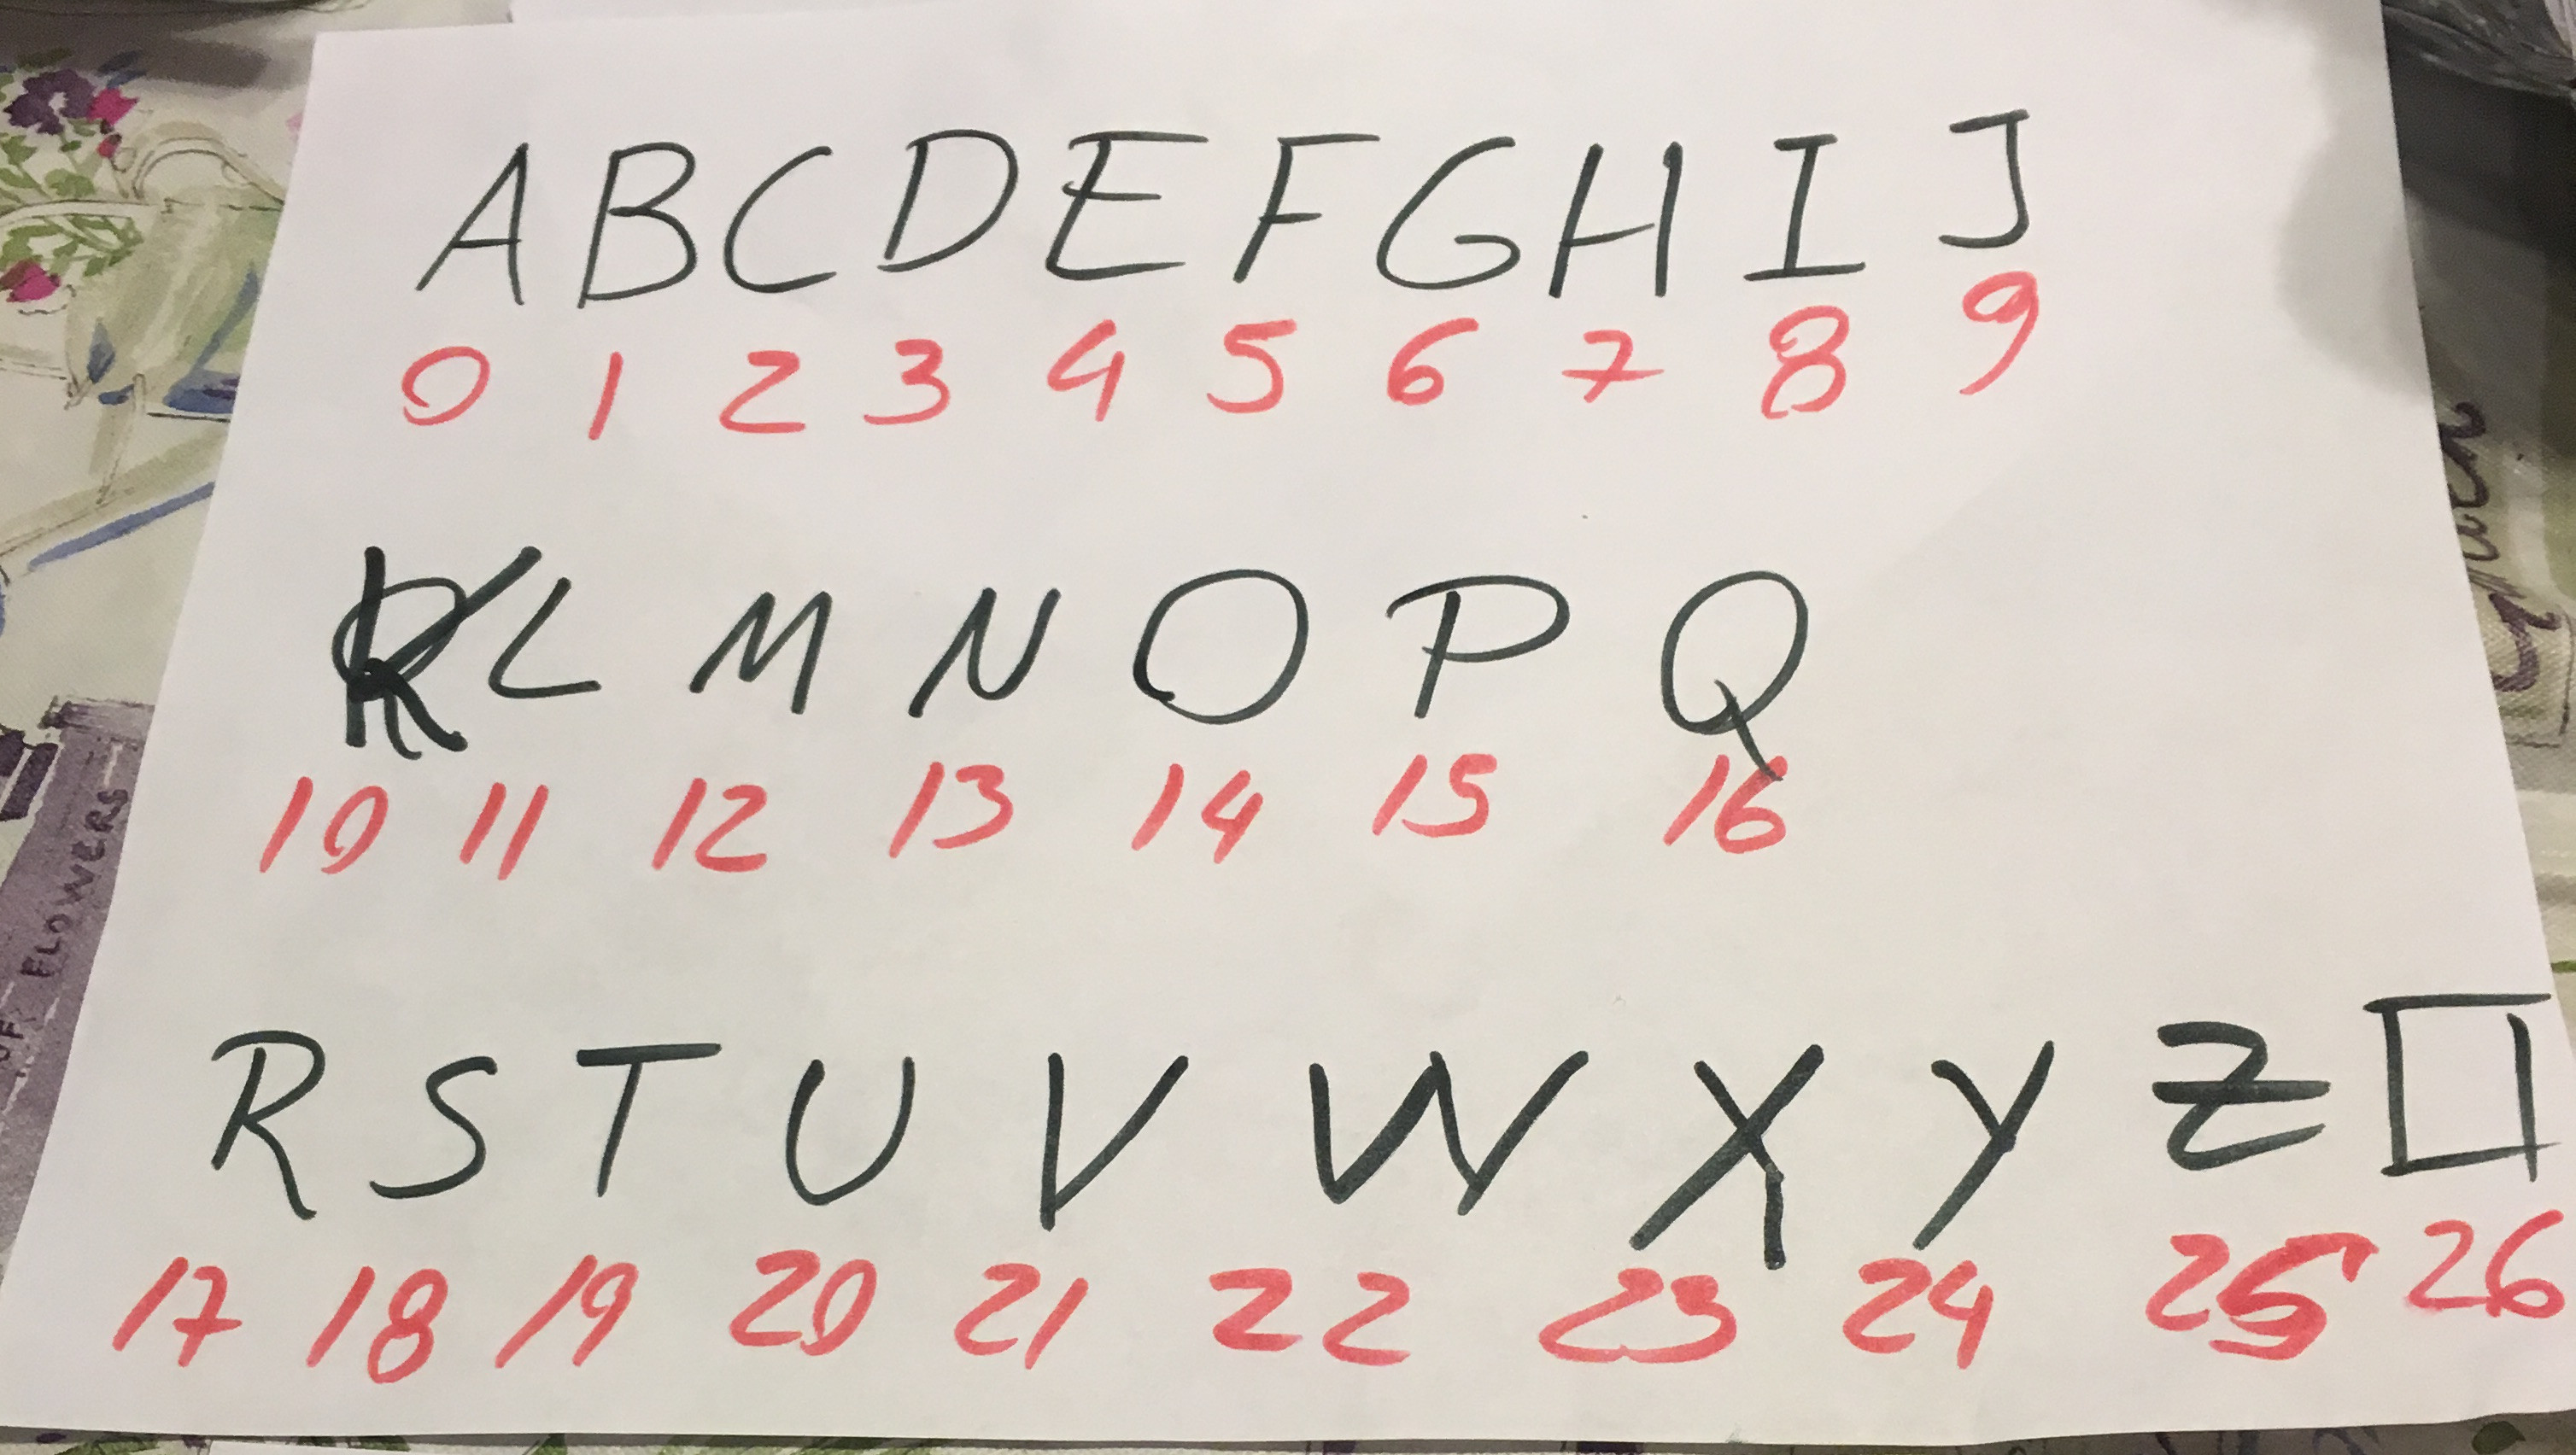 A B C D E F G H I J
0 1 2 3 4 5 6 7 8 9
K L M N O P Q
10 11 12 13 14 15 16
R S T U V W X Y Z □
17 18 19 20 21 22 23 24 25 26
OF FLOWERS